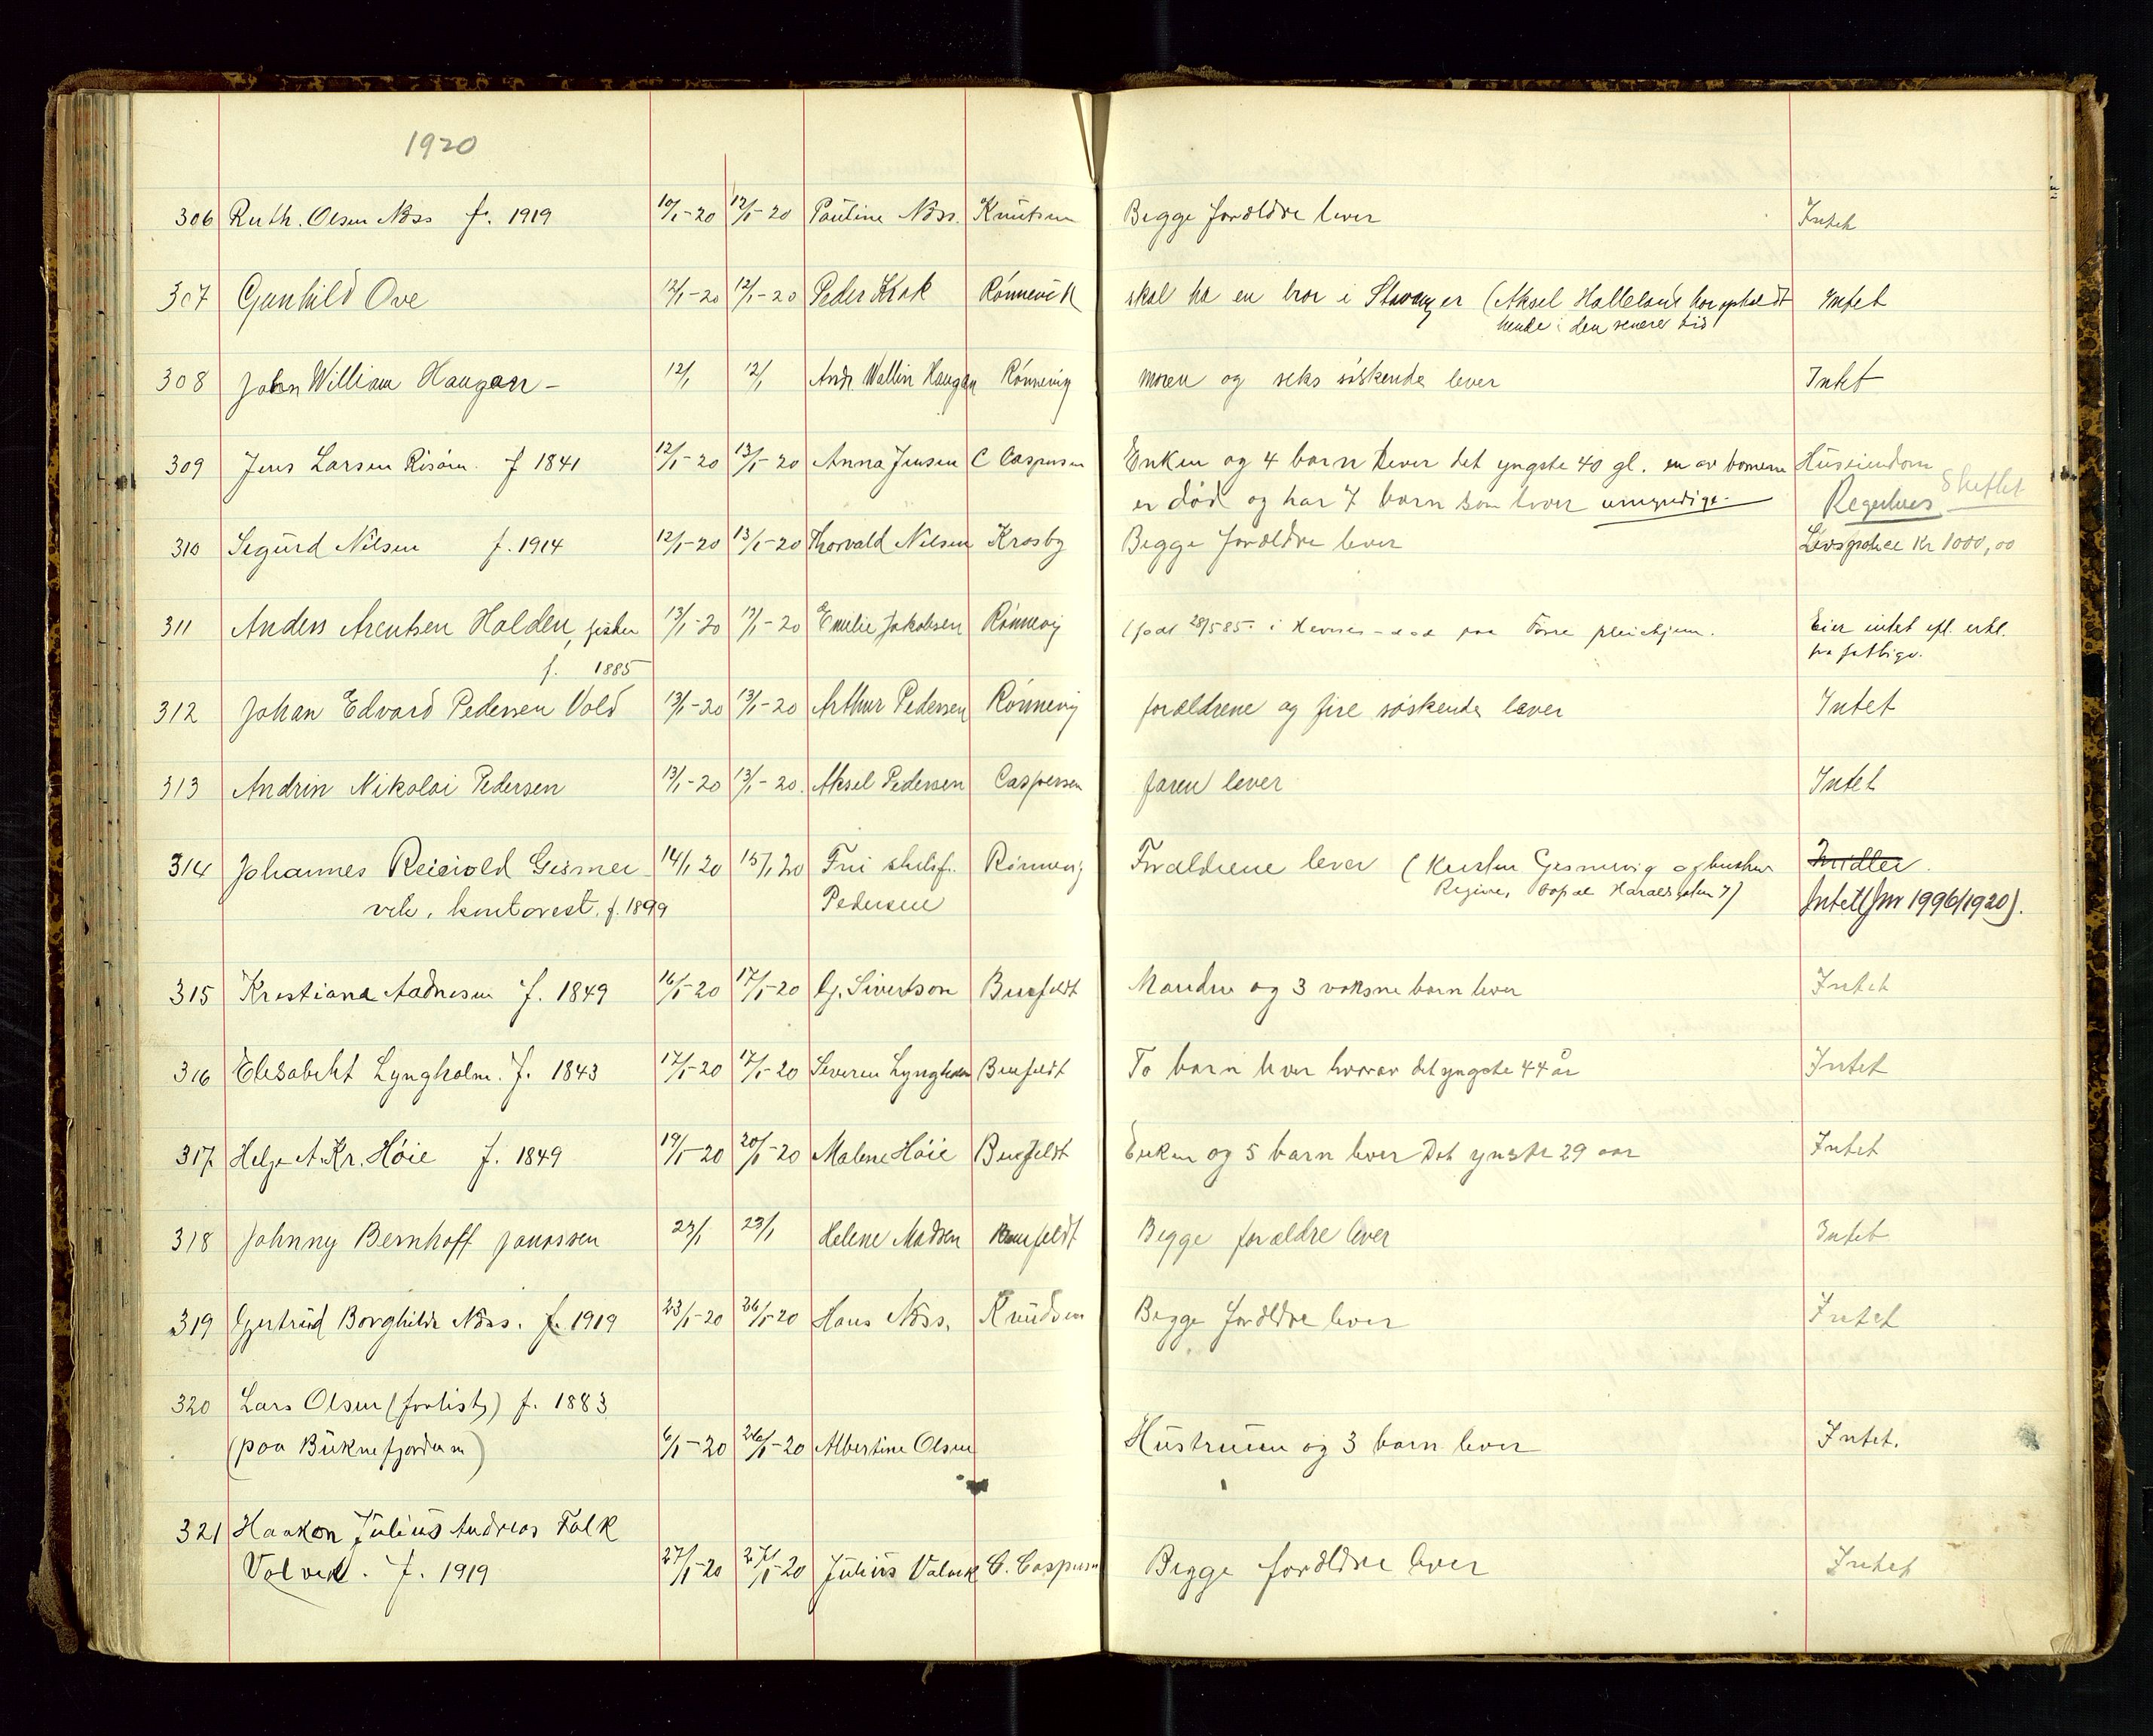 1920
306 Ruth. Olsen Næss f. 1919 10/1-20 12/1-20 Pauline Næss. Knutsen Begge forældre lever Intet
307 Gunhild Ove 12/1-20 12/1-20 Peder Krak Rönnevik skal ha en bror i Stavanger (Aksel Halleland har opholdt Intet
hende i den senere tid)
308 John William Haugan - 12/1 12/1 Andr. Wallin Haugan Rönnevig moren og seks söskende lever Intet
309 Jens Larsen Risöen. f 1841 12/1-20 13/1-20 Anna Jensen C Caspersen Enken og 4 barn lever det yngste 40 gl. en av barnene Huseiendom
er död og har 7 barn som lever umyndige - Registreres Skiftet
310 Sigurd Nilsen f. 1914 12/1-20 13/1-20 Thorvald Nilsen Krosby Begge forældre lever Livspolice Kr 1000,00
311 Anders Arentsen Halden, fisker 13/1-20 13/1-20 Emelie Jakobsen Rönnevig (født 28/5 85. i - død paa pleiehjem. Eier intet efl. erkl.
f. 1885 fra fattigv.
312 Johan Edvard Pedersen Vold 13/1-20 13/1-20 Arthur Pedersen Rönnevig forældrene og fire söskende lever Intet
313 Andrin Nikolai Pedersen 13/1-20 13/1-20. Aksel Pedersen Caspersen faren lever Intet
314 Johannes Reinvold Geismer- 14/1 20 15/1 20 Rönnevig Forældrene lever ( Gismervig og hustru Midler.
vik, kontorest. f. 1899 Pedersen Regine, Haralds gaten 7) Intet (Jnr 1996/1920).
315 Krestiane Aadnesen f. 1849 16/1-20 17/1-20 G. Sivertson Buefeldt Manden og 3 voksne barn lever Intet
316 Elisabeht Lyngholm. f. 1843 17/1-20 17/1-20 Severin Lyngholm Buefeldt To barn lever hvorav det yngste 44 år Intet
317. Helge A. Kr. Höie f. 1849 19/1-20 20/1-20 Malene Höie Buefeldt Enken og 5 barn lever Det ynste 29 aar Intet
318 Johnny Bernhoff Jonassen 23/1 23/1 Helene Madsen Buefeldt Begge forældre lever Intet
319 Gjertrud Borghilde Næss. f. 1919 23/1-20 26/1-20 Hans Næss, Knudsen Begge forældre lever Intet
320 Lars Olsen (forlist) f. 1883
(paa Buknefjorden) 6/1-20 26/1-20 Albertine Olsen Hustruen og 3 barn lever Intet.
321 Haakon Julius Andreas Falk
Valvik. f. 1919 27/1-20 27/1-20 Julius Valvik C. Caspersen Begge forældre lever Intet